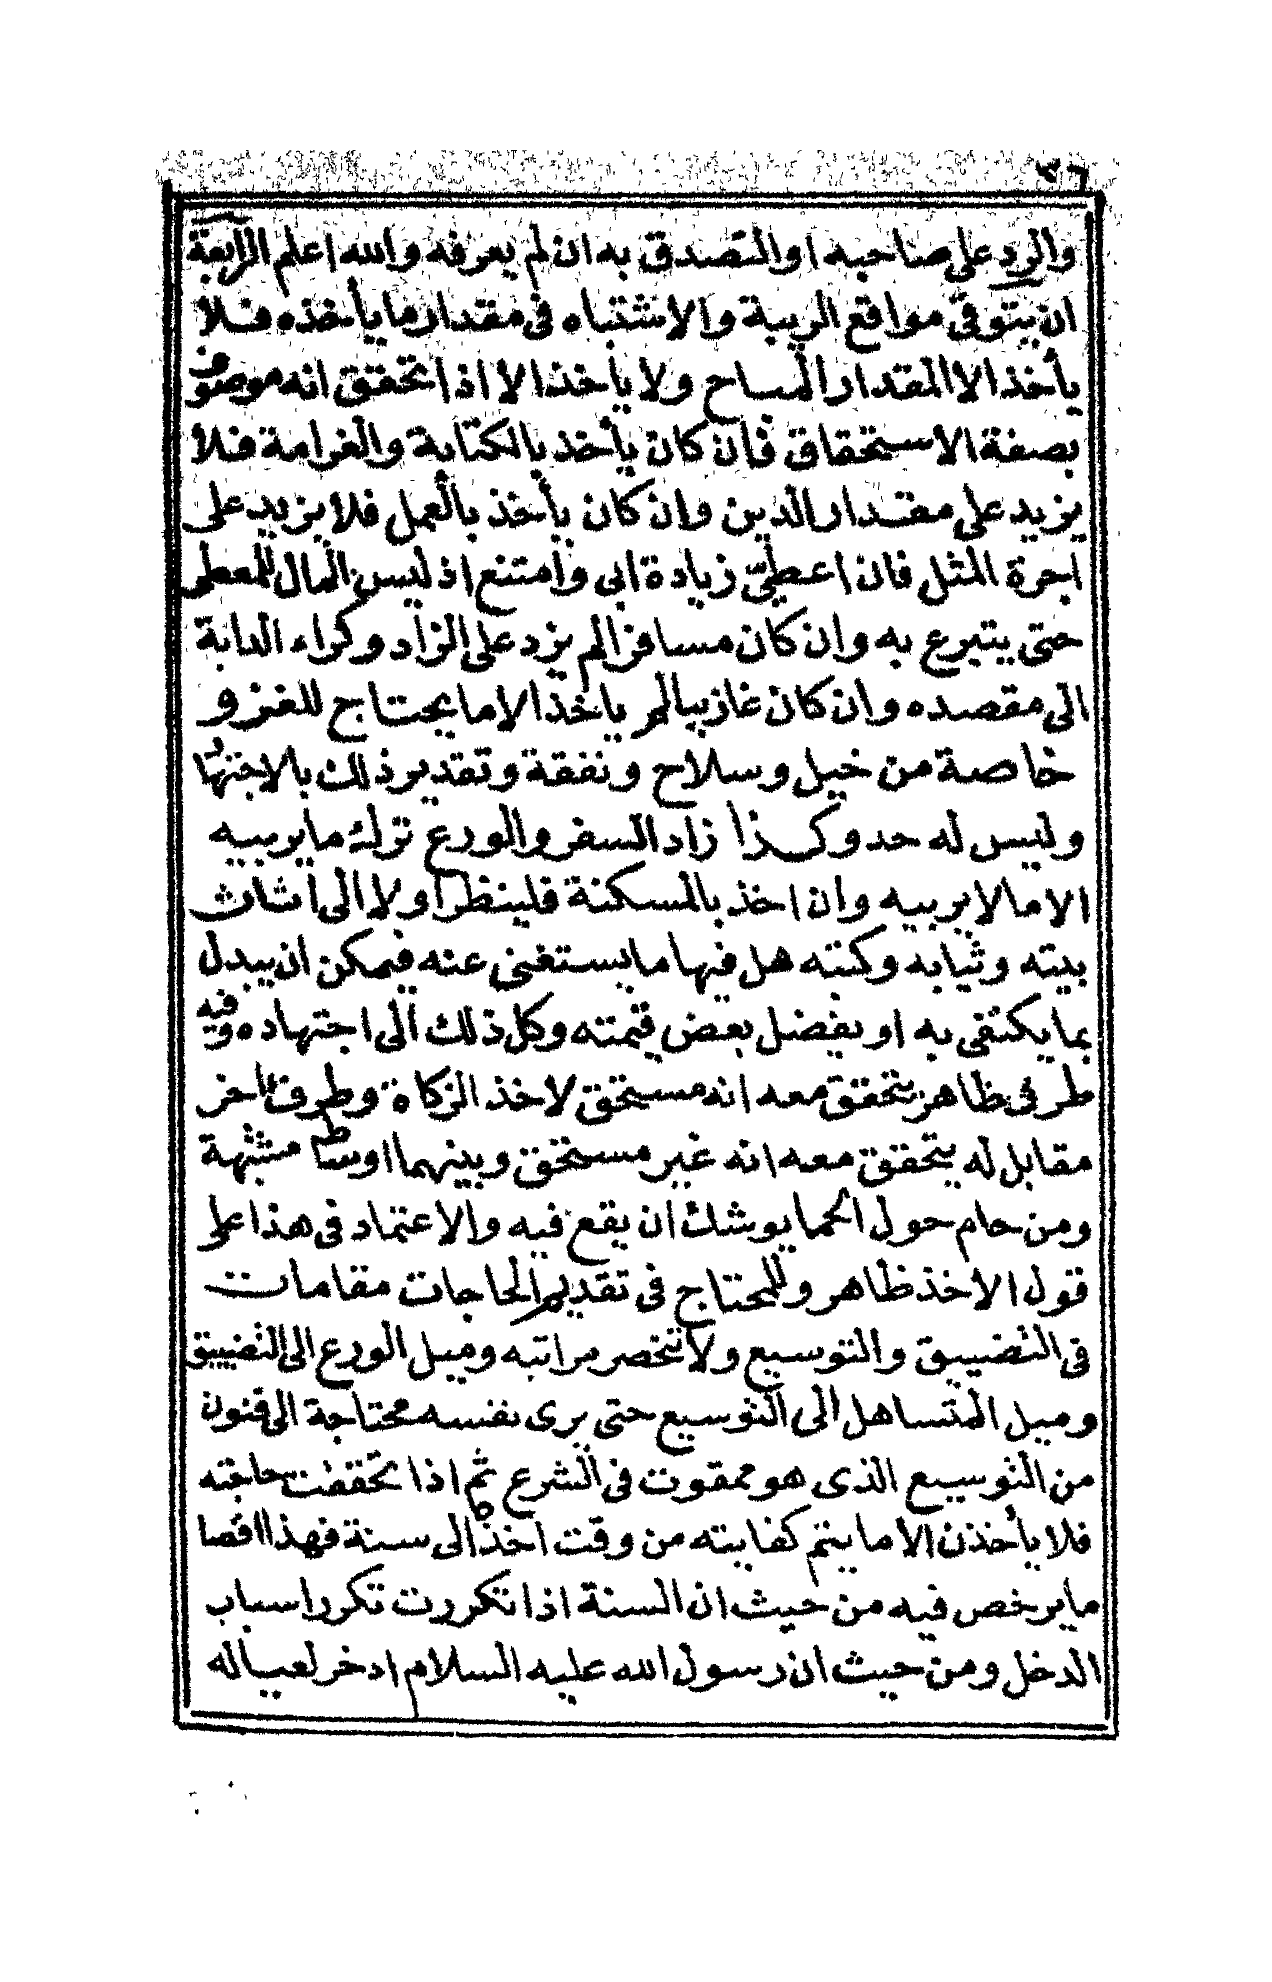 والرد على صاحبه اوالتصدق به ان لم يعرفه والله اعلم الرابعة
ان يتوقى مواقع الريبة والاشتباه فى مقدار ما يأخذه فلا
يأخذ الا المقدار المباح ولا يأخذ الا اذا تحقق انه موصوف
بصفة الاستحقاق فان كان يأخذ بالكتابة والغرامة فلا
يزيد على مقدار الدين وان كان يأخذ بالعمل فلا يزيد على
اجرة المثل فان اعطى زيادة ابى وامتنع اذ ليس المال للمعطى
حتى يتبرع به وان كان مسافرا لم يزد على الزاد وكراء الدابة
الى مقصده وان كان غازيا لم ياخذ الا ما يحتاج للغزو
خاصة من خيل وسلاح ونفقة وتقدير ذلك بالاجتهاد
وليس له حد وكذا زاد السفر والورع ترك ما يريبه
الا ما لا يريبه وان اخذ بالمسكنة فلينظر اولا الى اثاث
بيته وثيابه وكتبه هل فيها ما يستغنى عنه فيمكن ان يبدل
بما يكتفى به او يفضل بعض قيمته وكل ذلك الى اجتهاده وفيه
طرفى ظاهر يتحقق معه انه مستحق لاخذ الزكاة وطرف اخر
مقابل له يتحقق معه انه غير مستحق وبينهما اوساط مشتبهة
ومن حام حول الحما يوشك ان يقع فيه والاعتماد فى هذا على
قول الاخذ ظاهر وللمحتاج فى تقدير الحاجات مقامات
فى التضييق والتوسيع ولا تنحصر مراتبه وميل الورع الى التضييق
وميل المتساهل الى التوسيع حتى يرى نفسه محتاجة الى فنون
من التوسيع الذى هو ممقوت فى الشرع ثم اذا تحققت حاجته
فلا يأخذن الا ما يتم كفايته من وقت اخذه الى سنة فهذا اقصا
ما يرخص فيه من حيث ان السنة اذا تكررت تكرر اسباب
الدخل ومن حيث ان رسول الله عليه السلام ادخر لعياله